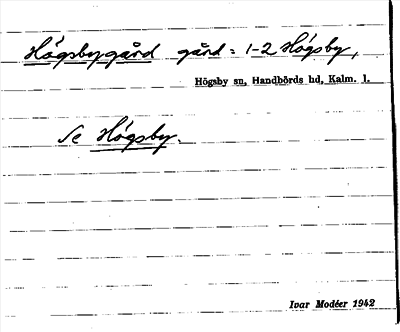 Högsbygård gård = 1-2 Högsby,
Högsby sn, Handbörds hd, Kalm. l.
Se Högsby.
Ivar Modéer 1942